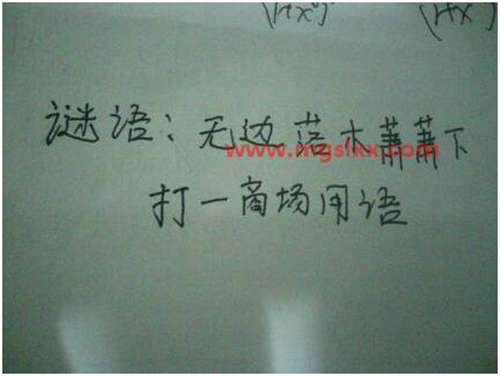 (1+x⁰) (1+x)
谜语：无边落木萧萧下
www.mgslxx.com
打一商场用语